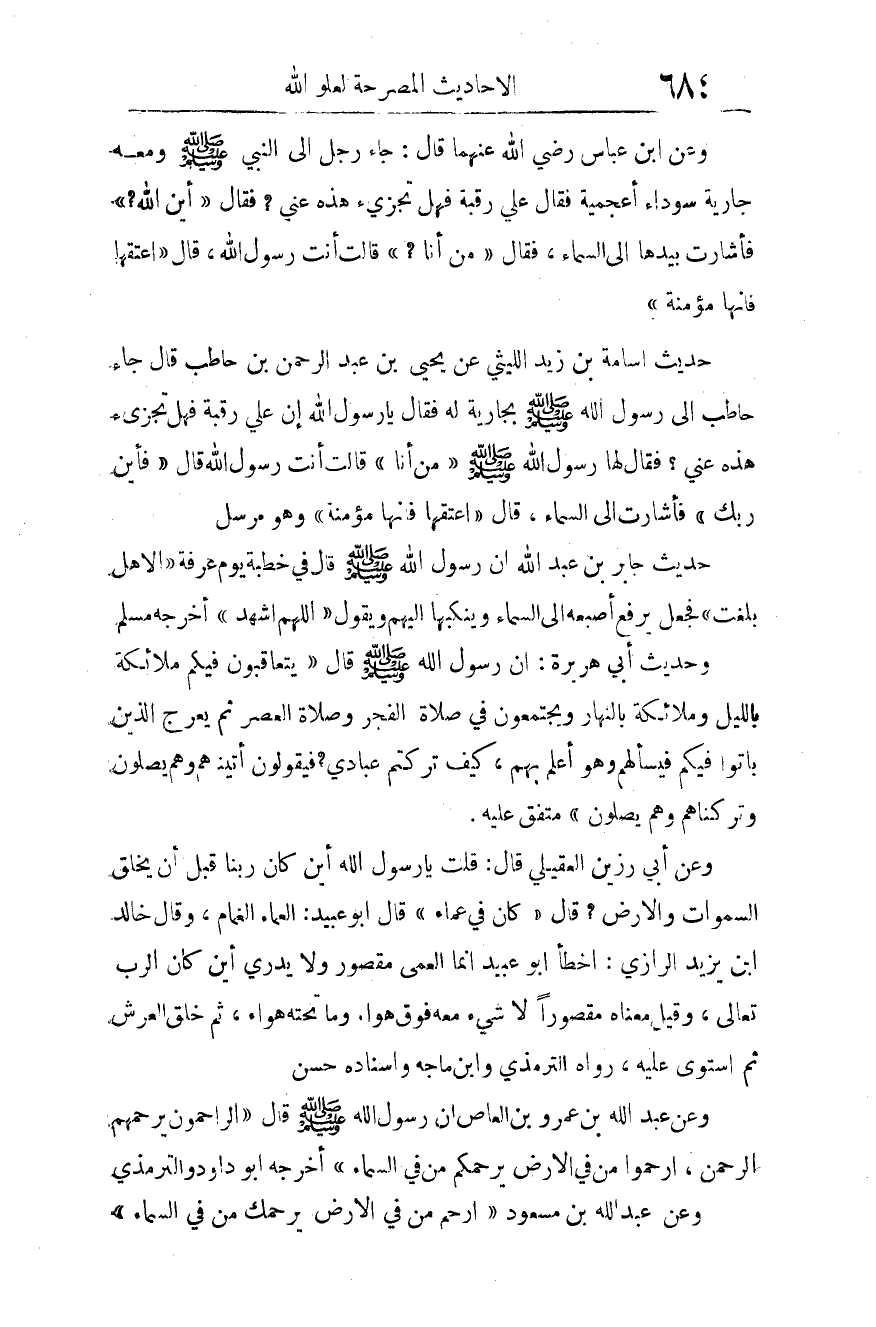 ٦٨٤ الاحاديث المصرحة لعلو الله
وعن ابن عباس رضي الله عنهما قال : جاء رجل الى النبي ﷺ ومعـــه
جارية سوداء أعجمية فقال علي رقبة فهل تجزيء هذه عني ? فقال « أين الله?».
فأشارت بيدها الى السماء ، فقال « من أنا ? » قالت أنت رسول الله ، قال « اعتقها
فانها مؤمنة »
حديث اسامة بن زيد الليثي عن يحيى بن عبد الرحمن بن حاطب قال جاء
حاطب الى رسول الله ﷺ بجارية له فقال يارسول الله إن علي رقبة فهل تجزىء
هذه عني ؟ فقال لها رسول الله ﷺ « من أنا » قالت أنت رسول الله قال « فأين
ربك » فأشارت الى السماء ، قال « اعتقها فانها مؤمنة » وهو مرسل
حديث جابر بن عبد الله ان رسول الله ﷺ قال في خطبة يوم عرفة « الاهل
بلغت » فجعل يرفع أصبعه الى السماء وينكبها اليهم ويقول « اللهم اشهد » أخرجه مسلم
وحديث أبي هريرة : ان رسول الله ﷺ قال « يتعاقبون فيكم ملائكة
بالليل وملائكة بالنهار ويجتمعون في صلاة الفجر وصلاة العصر ثم يعرج الذين
باتوا فيكم فيسألهم وهو أعلم بهم ، كيف تركتم عبادي? فيقولون أتيناهم وهم يصلون
وتركناهم وهم يصلون » متفق عليه .
وعن أبي رزين العقيلي قال : قلت يارسول الله أين كان ربنا قبل أن يخلق
السموات والارض ? قال « كان في عماء » قال ابو عبيد : العماء الغمام ، وقال خالد
ابن يزيد الرازي : اخطأ ابو عبيد انما العمى مقصور ولا يدري أين كان الرب
تعالى ، وقيل معناه مقصوراً لا شيء معه فوق هواء وما تحته هواء ، ثم خلق العرش
ثم استوى عليه ، رواه الترمذي وابن ماجه واسناده حسن
وعن عبد الله بن عمرو بن العاص ان رسول الله ﷺ قال « الراحمون يرحمهم
الرحمن ، ارحموا من في الارض يرحمكم من في السماء » أخرجه ابو داود والترمذي
وعن عبد الله بن مسعود « ارحم من في الارض يرحمك من في السماء »